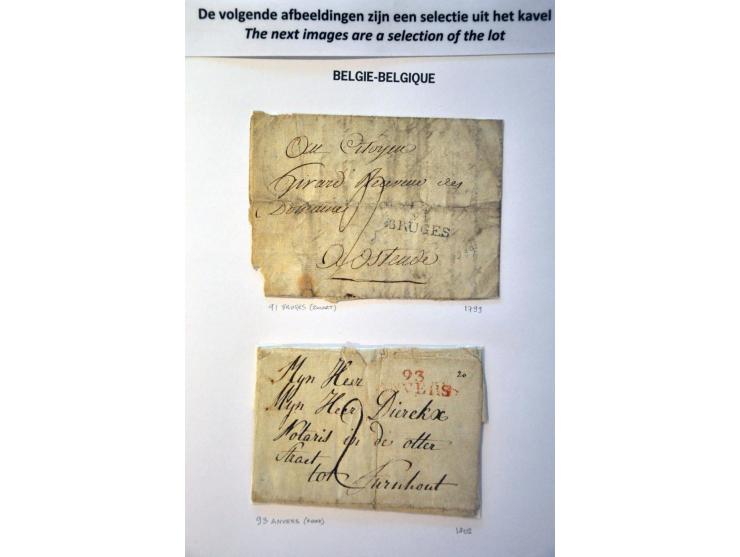 De volgende afbeeldingen zijn een selectie uit het kavel
The next images are a selection of the lot
BELGIE-BELGIQUE
Au Citoyen
Girard Receveur des
Domaines
BRUGES
a Ostende
91 BRUGES (ZWART) 1799
93
ANVERS
20
Myn Heer
Myn Heer Dierckx
Notaris in de otter
Straet
tot Turnhout
93 ANVERS (ROOD)